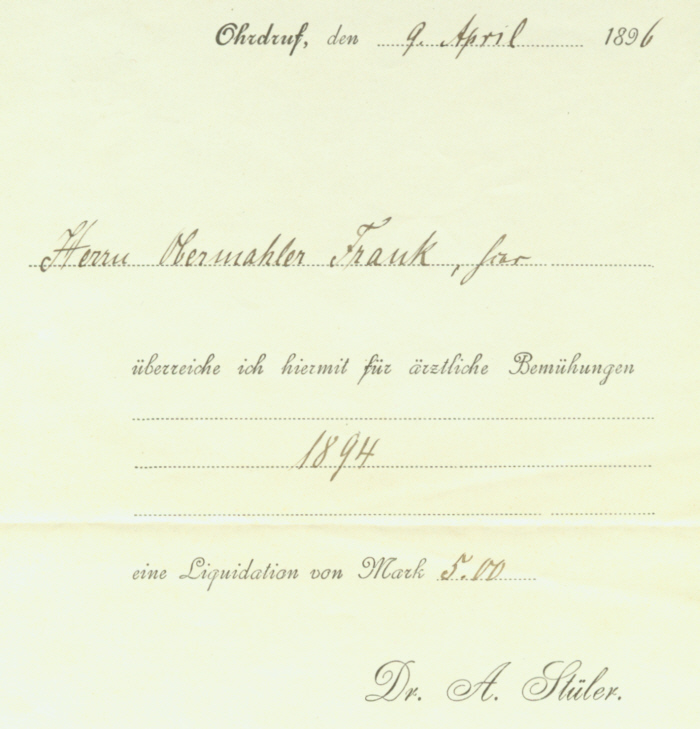 Ohrdruf, den 9. April 1896
Herrn Obermahler Frank, hier
überreiche ich hiermit für ärztliche Bemühungen
1894
eine Liquidation von Mark 5.00
Dr. A. Stüler.